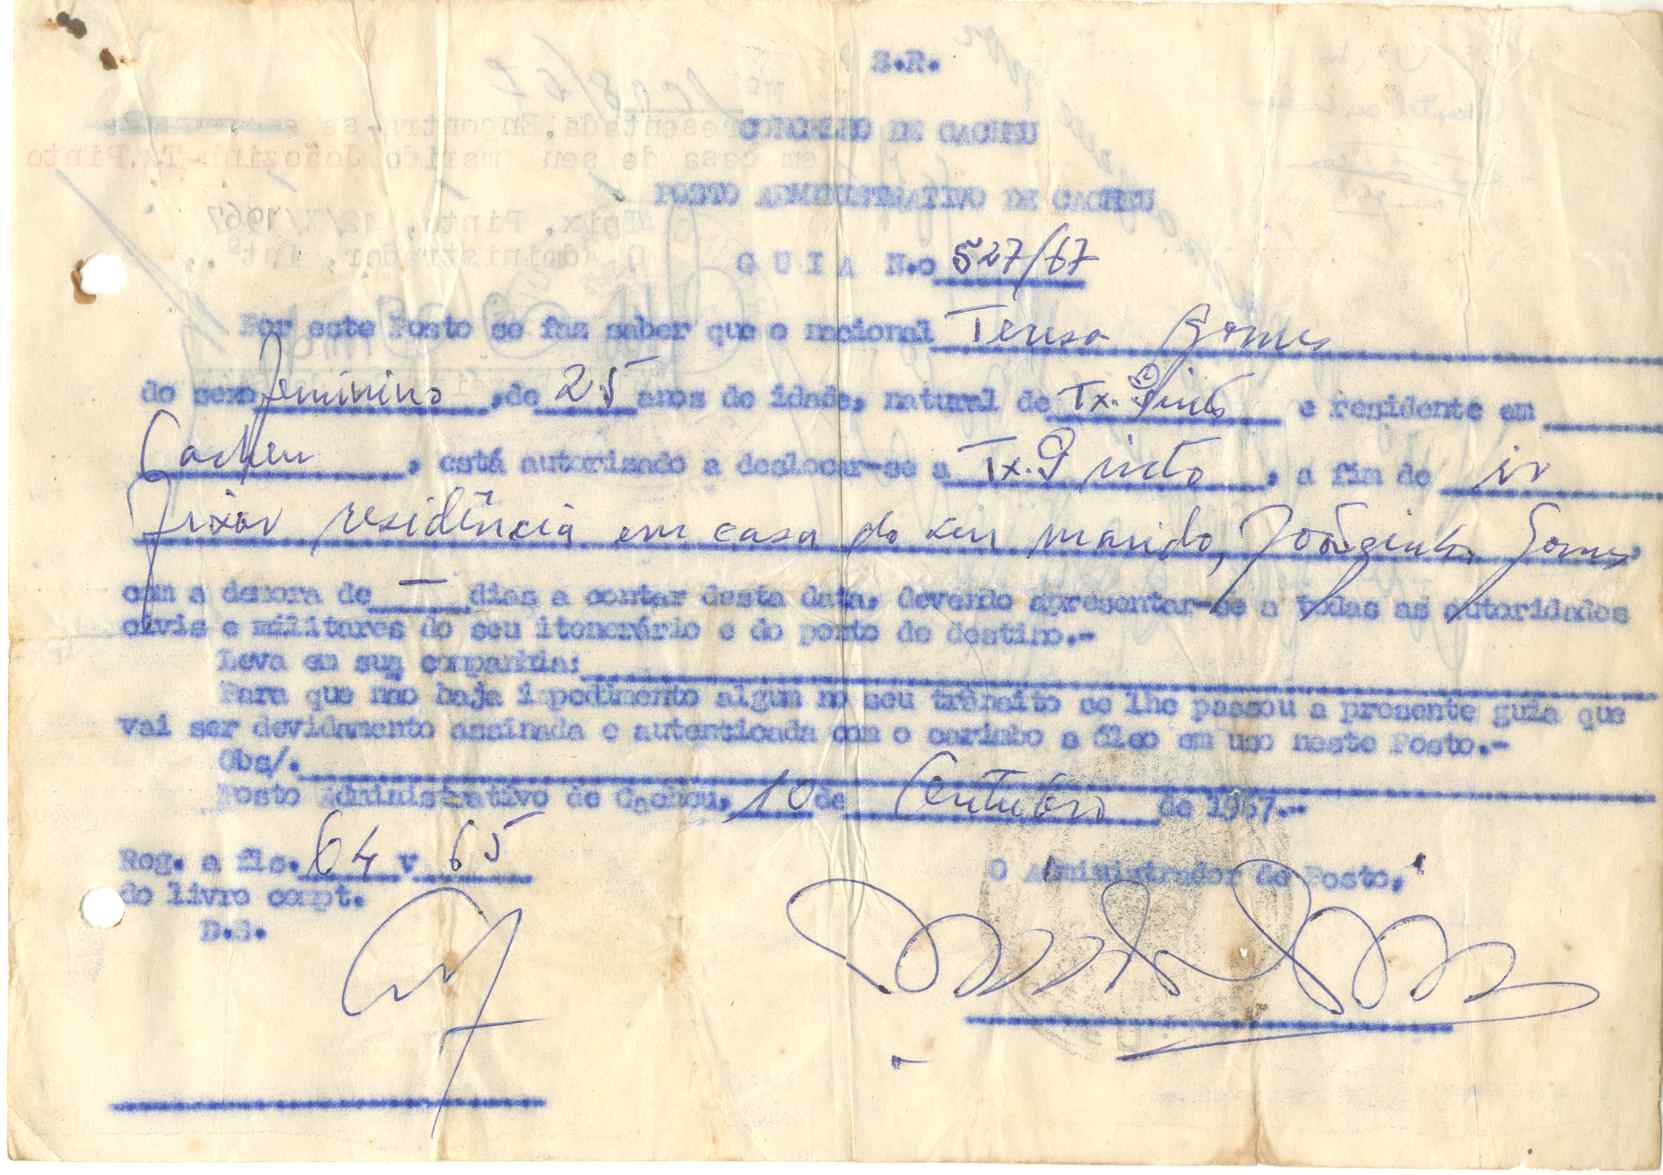 S.R.
CONCELHO DE CACHEU
POSTO ADMINISTRATIVO DE CACHEU
G U I A N.o 527/67
Por este Posto se faz saber que o nacional Teresa Gomes
do sexo feminino, de 25 anos de idade, natural de Tx. Pinto e residente em
Cacheu, está autorizado a deslocar-se a Tx. Pinto, a fim de ir
fixar residência em casa do seu marido, Joãozinho Gomes,
com a demora de — dias a contar desta data, devendo apresentar-se a todas as autoridades
civis e militares do seu itenerário e do posto de destino.-
Leva em sua companhia:
Para que não haja impedimento algum no seu trânsito se lhe passou a presente guia que
vai ser devidamente assinada e autenticada com o carimbo a óleo em uso neste Posto.-
Obs/.
Posto Administrativo de Cacheu, 10 de Outubro de 1967.-
Reg. a fls. 64 v 65
do livro compt.
O Administrador de Posto,
Nº 1008/67
Apresentada. Encontra-se
em casa de seu marido Joãozinho-Tx. Pinto
Teix. Pinto, 12/X/1967
O Administrador, intº.,